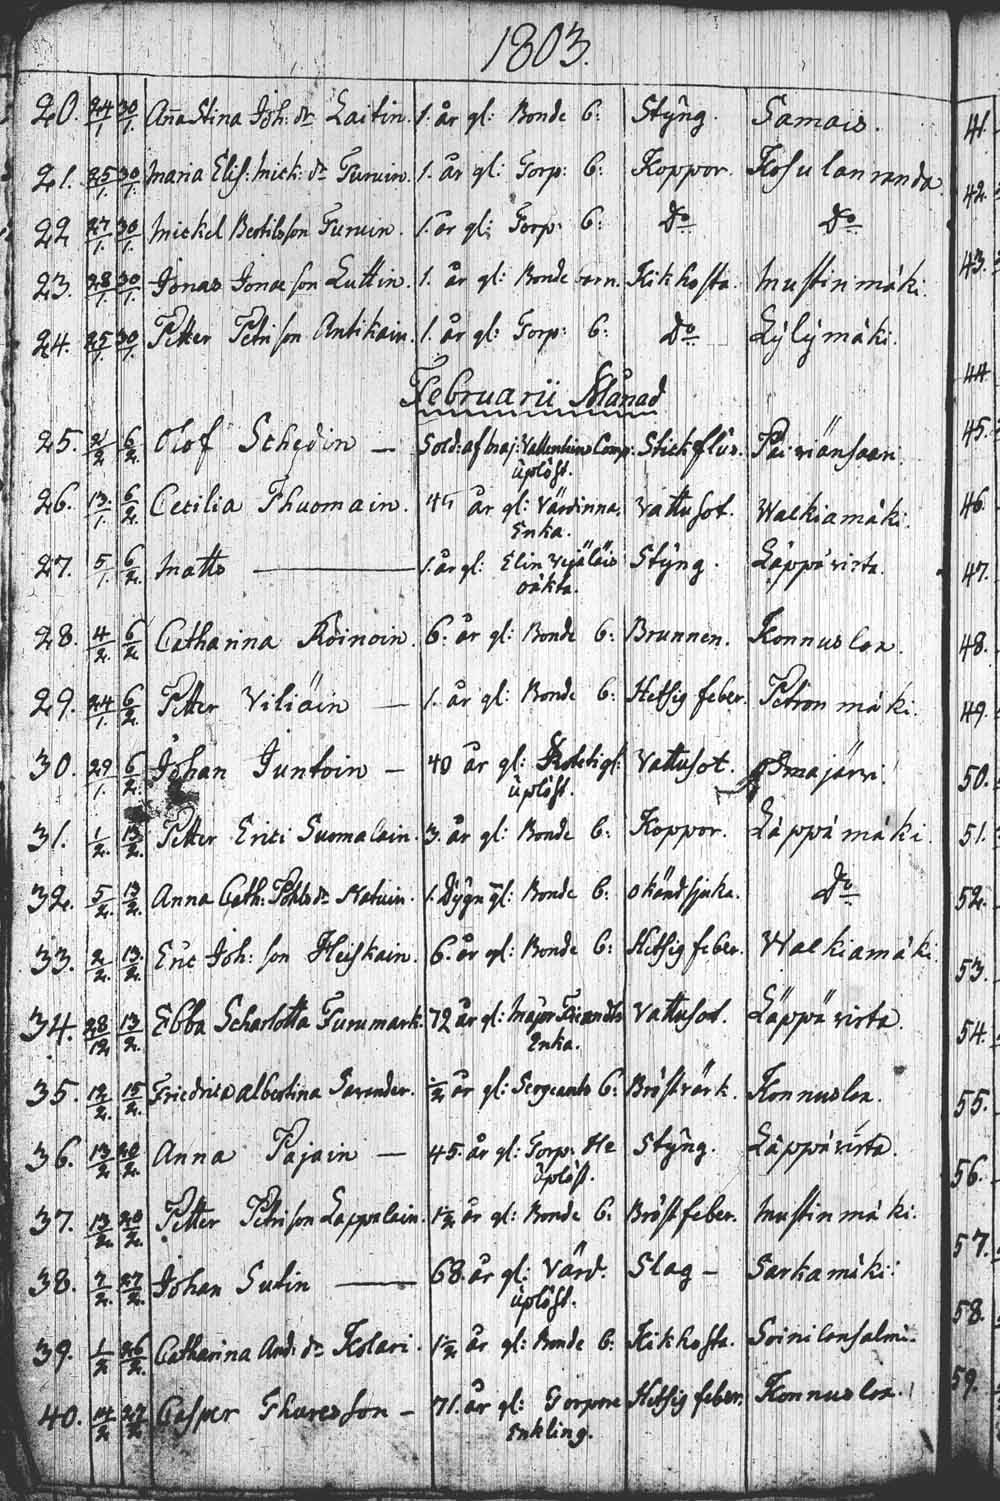 1803.
20. 24/1. 30/1. Anna Stina Joh: dr Laitin. 1. år gl: Bonde b: Styng. Samais.
21. 25/1. 30/1. Maria Elis: Mick: dr Turuin. 1. år gl: Torp: b: Koppor. Kosulanranda.
22 27/1. 30/1. Mickel Bertilsson Turuin. 1. år gl: Torp: b: Do Do
23. 28/1. 30/1. Jonas Jonasson Luttin. 1. år gl: Bonde barn. Kikhosta. Mustinmäki.
24. 25/1. 30/1. Petter Petrison Antikain. 1. år gl: Torp: b: Do Lylymäki.
Februarii Månad
25. 2/2 6/2. Olof Schedin — Sold: af Maj: Comp: Stickflus. Päiviänsaari.
uplöst.
26. 13/1. 6/2. Cecilia Thuomain. år gl: Värdinna, Vattusot. Walkiamäki.
Enka.
27. 5/1. 6/2. Matts — 1. år gl: Elin Styng. Läppävirta.
oäkta.
28. 4/2. 6/2 Catharina Roinoin. 6. år gl: Bonde b: Brunnen. Konnuslax.
29. 24/1. 6/2. Petter Viliäin — 1. år gl: Bonde b: Hetsig feber. Petronmäki.
30. 29/1. 6/2. Johan Juntoin — 40 år gl: Vattusot. Osmajärvi.
uplöst.
31. 1/2. 13/2. Petter Erici Suomalain. 3. år gl: Bonde b: Koppor. Läppämäki.
32. 5/2. 13/2. Anna Cath: Påhlsdr Matuin. 1. Dygn gl: Bonde b: okänd sjuka. Do
33. 2/2. 13/2. Eric Joh: son Heiskain. 6. år gl: Bonde b: Hetsig feber. Walkiamäki.
34. 28/12 13/2. Ebba Scharlotta Furumark. 72 år gl: Major Vattusot. Läppävirta.
Enka.
35. 12/2. 15/2. Friedrica Albertina Savander. 1/2 år gl: Sergeants b: Bröstvärk. Konnuslax.
36. 13/2 20/2. Anna Pajain — 45. år gl: Torp: He Styng. Läppävirta.
uplöst.
37. 13/2. 20/2. Petter Petrison Lappalain. 1 1/2 år gl: Bonde b: Bröstfeber. Mustinmäki.
38. 7/2. 27/2. Johan Sutin — 68. år gl: Värd. Slag — Sarkamäki.
uplöst.
39. 1/2 26/2. Catharina And: dr Kolari. 1 1/2 år gl: Bonde b: Kikhosta. Soinilansalmi.
40. 14/2 27/2 Casper Thuresson — 71. år gl: Torpare Hetsig feber. Konnuslax.
Enkling.
41.
42.
43.
44.
45.
46.
47.
48.
49.
50.
51.
52.
53.
54.
55.
56.
57.
58.
59.